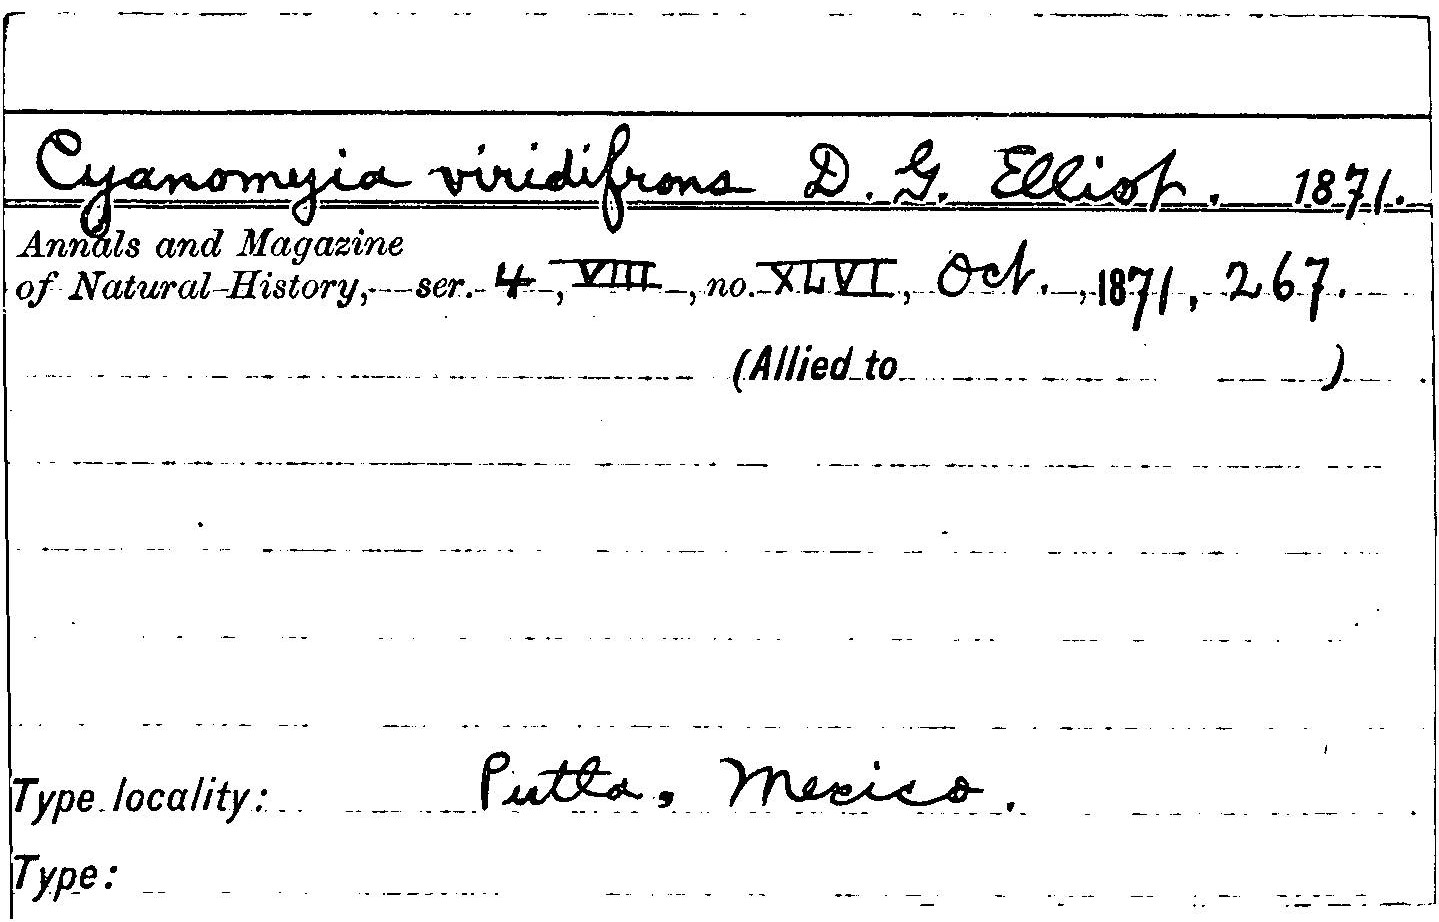 Cyanomyia viridifrons D. G. Elliot. 1871.
Annals and Magazine
of Natural History, ser. 4, VIII, no. XLVI, Oct., 1871, 267.
(Allied to )
Type locality: Putla, Mexico.
Type: